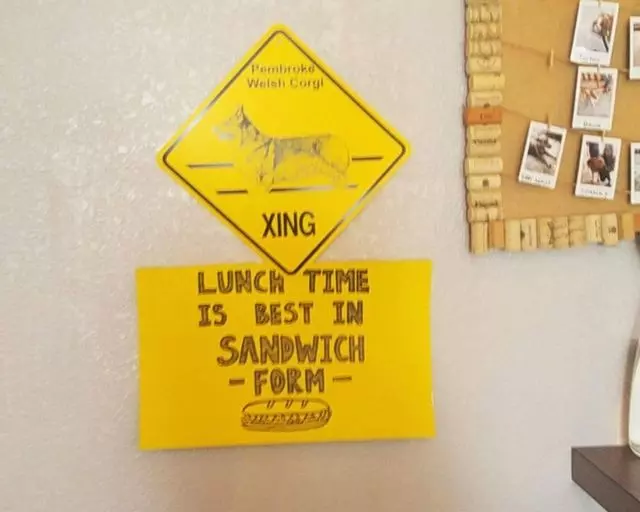 Pembroke
Welsh Corgi
XING
LUNCH TIME
IS BEST IN
SANDWICH
- FORM -